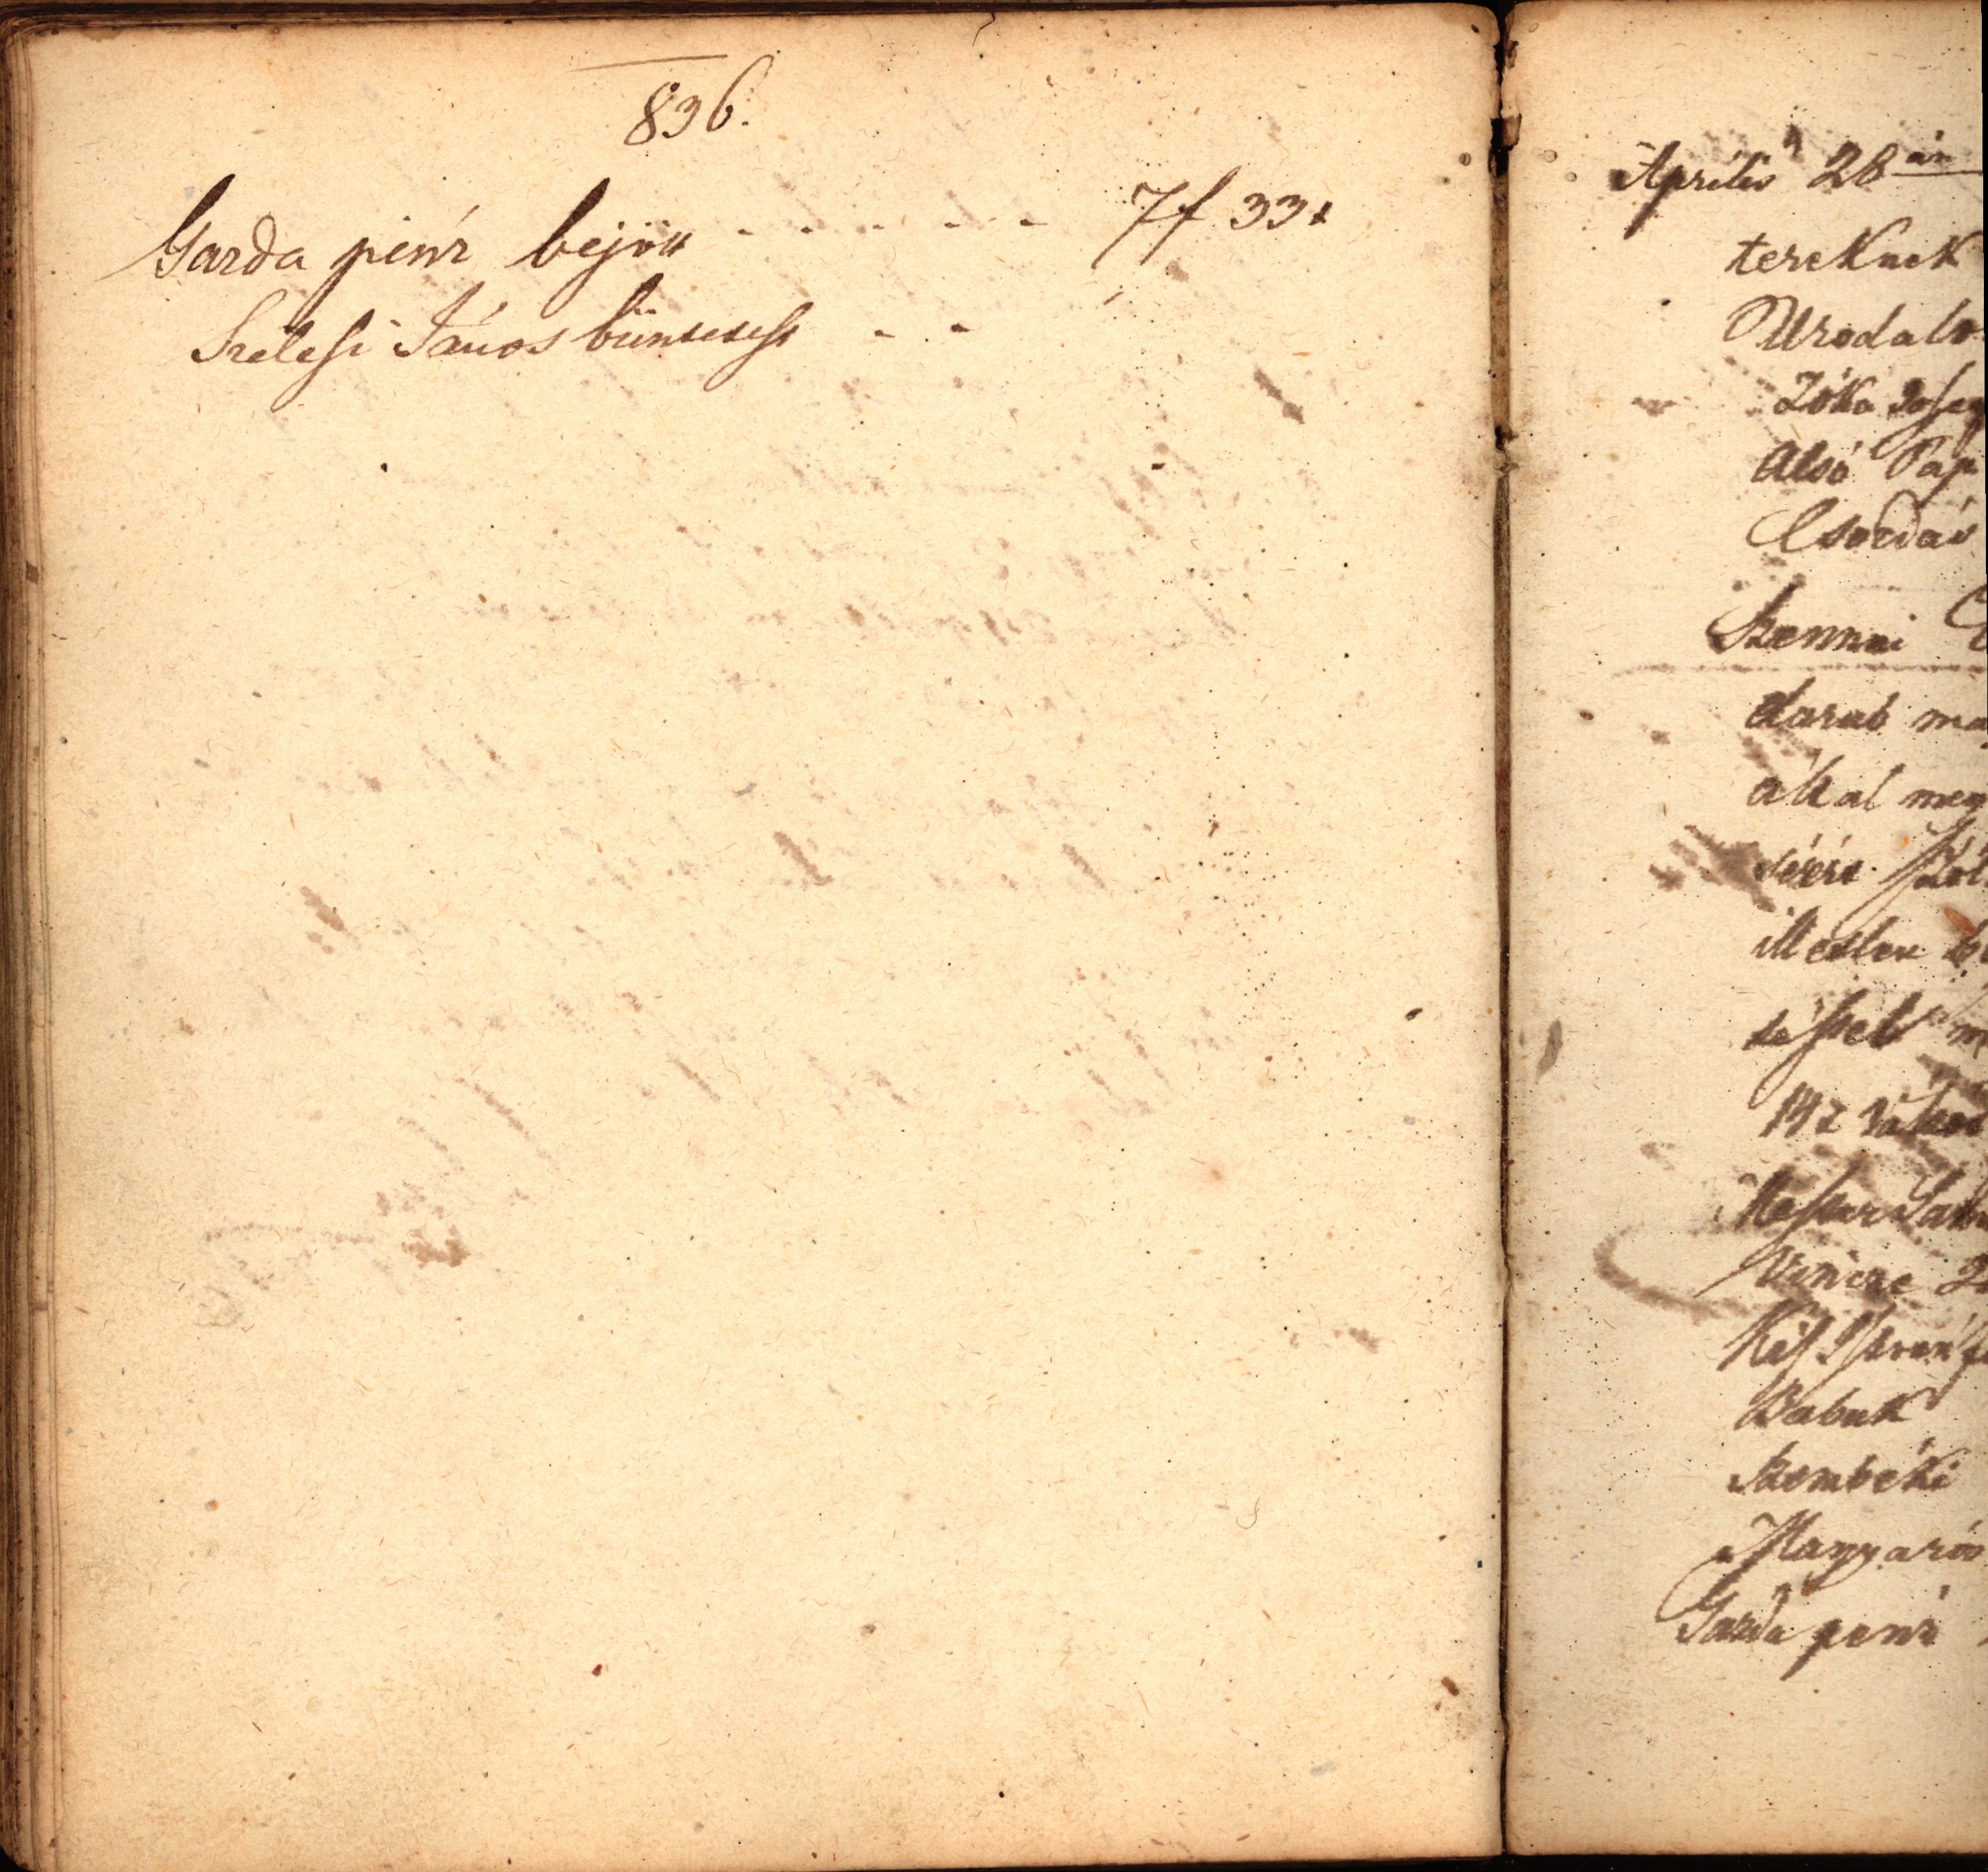 836.
Garda pénz bejött - - - - - - 7f 33x
Szelesi János büntetése - -
Aprilis 28án
tereknek
Urodalo
Zóka Josep
Alsó Pap
Csordás
Szennai
darab ma
által meg
illetlen
Vincze
Kis Istvan
Babuk
Szombéki
Magyarós
Garda penz